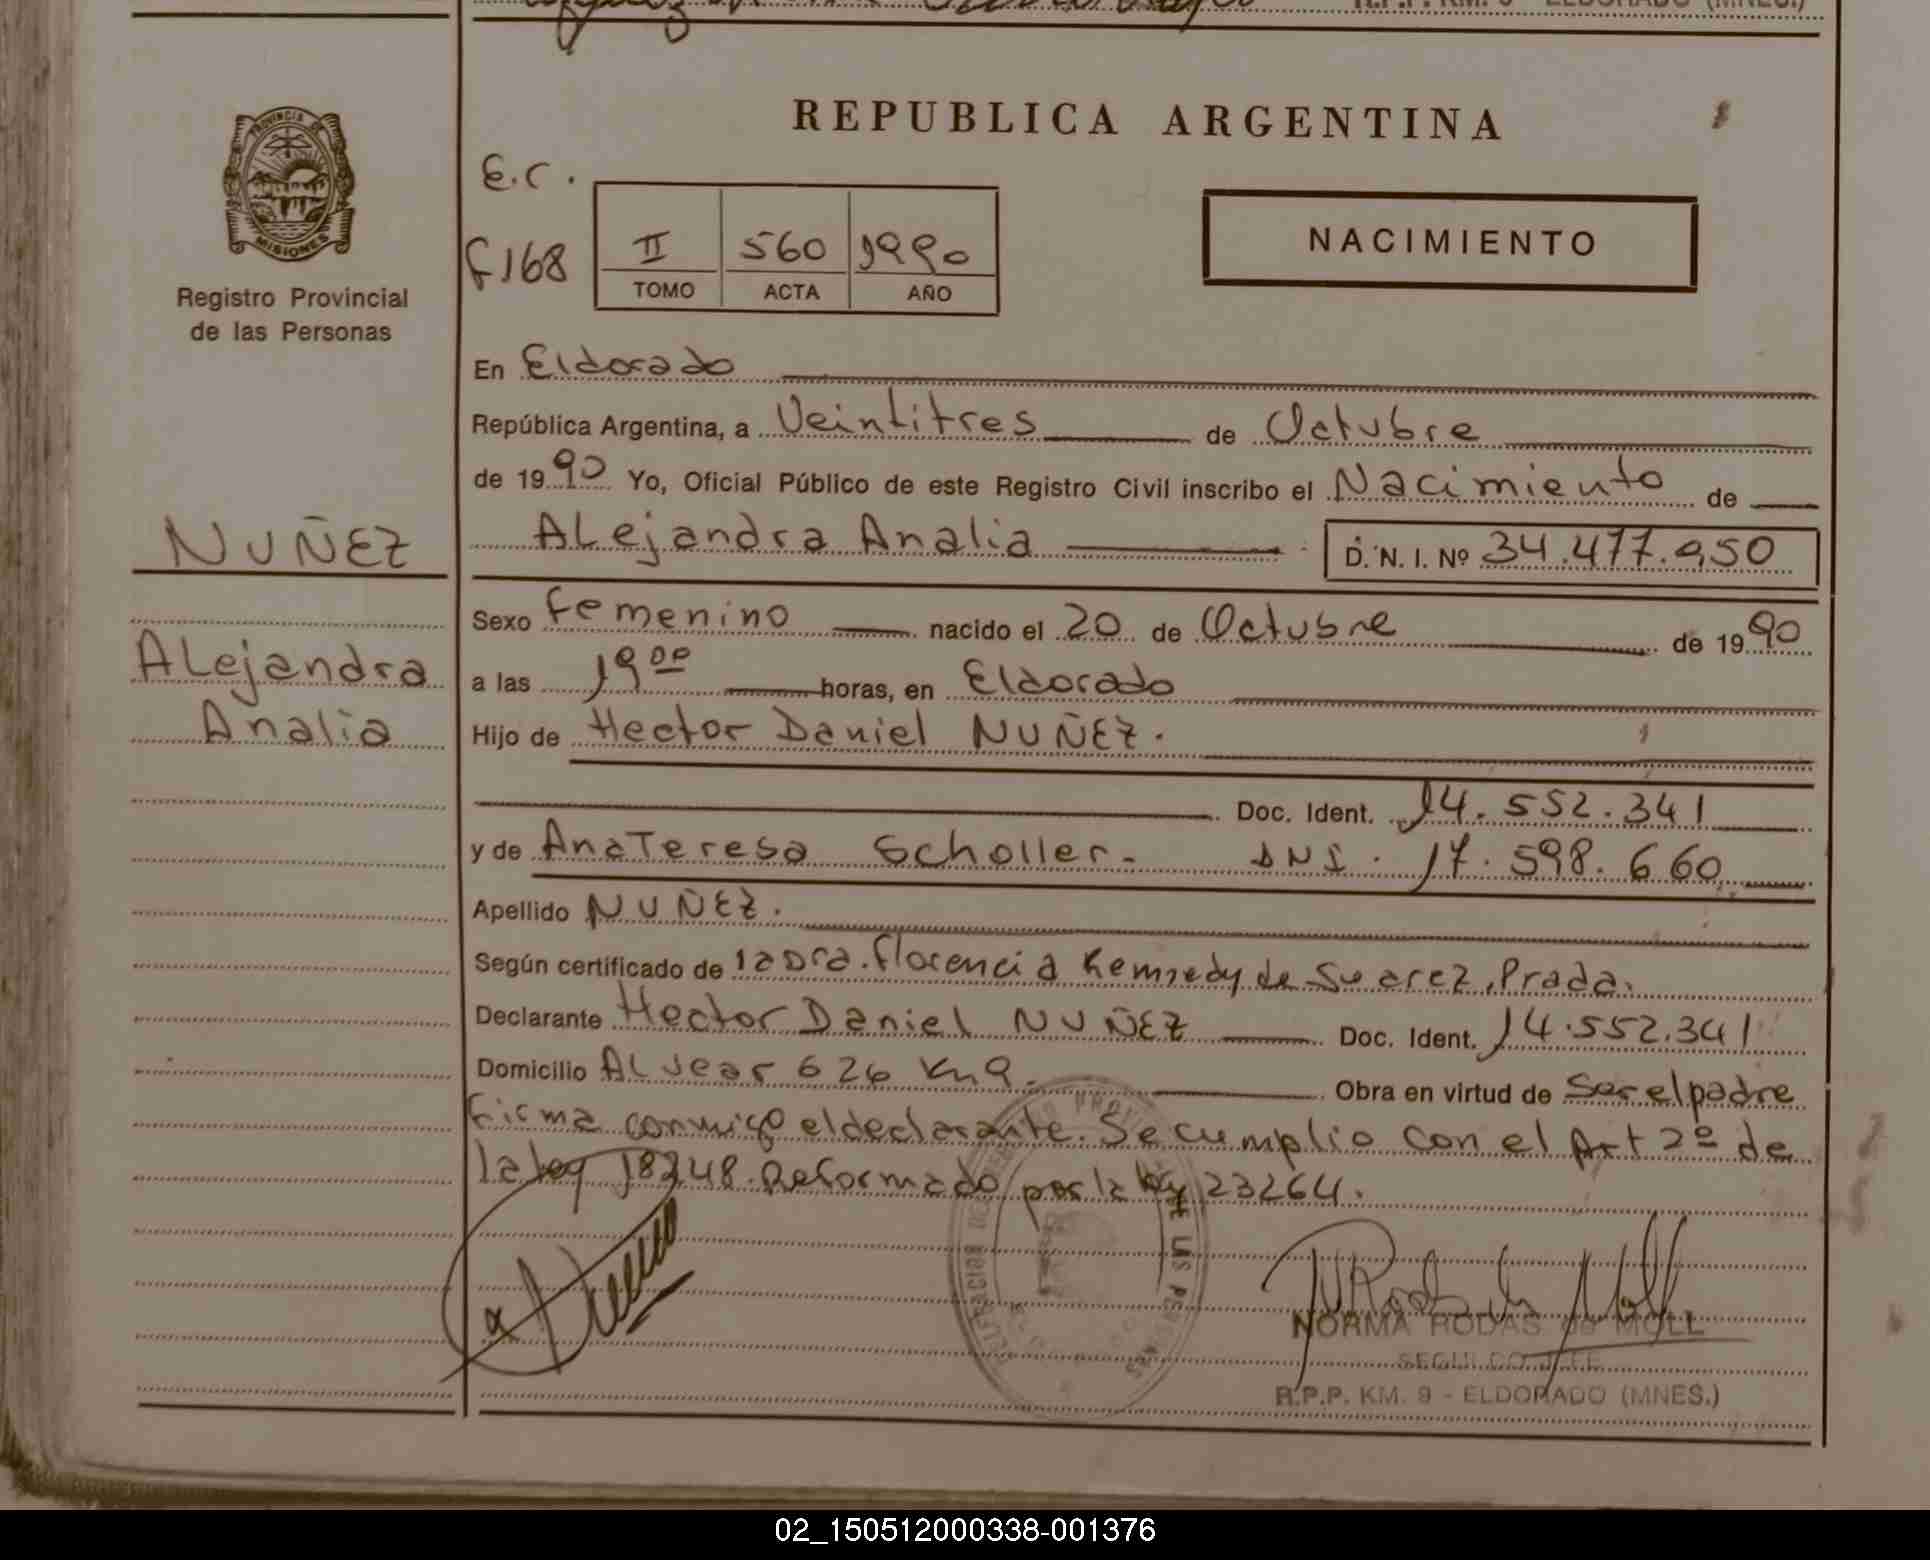 R.P.P. KM. 9 - ELDORADO (MNES.)
PROVINCIA DE
MISIONES
Registro Provincial
de las Personas
REPUBLICA ARGENTINA
E.C.
F168
II 560 1990
TOMO ACTA AÑO
NACIMIENTO
En Eldorado
República Argentina, a Veintitres de Octubre
de 1990 Yo, Oficial Público de este Registro Civil inscribo el Nacimiento de
NUÑEZ
ALejandra Analia D. N. I. Nº 34.477.950
Sexo Femenino nacido el 20 de Octubre de 1990
ALejandra
a las 19 00 horas, en Eldorado
Analia
Hijo de Hector Daniel NUÑEZ.
Doc. Ident. 14.552.341
y de Ana Teresa Scholler. DNI. 17.598.660
Apellido NUÑEZ.
Según certificado de la Dra. Florencia Kennedy de Suarez Prada.
Declarante Hector Daniel NUÑEZ Doc. Ident. 14.552.341
Domicilio ALvear 626 Km 9. Obra en virtud de Ser el padre
Firma conmigo el declarante. Se cumplio con el Art 2º de
la ley 18248. Reformado por la ley 23264.
DE LAS PERSONAS
NORMA RODAS de MOLL
SEGUNDO JEFE
R.P.P. KM. 9 - ELDORADO (MNES.)
02_150512000338-001376